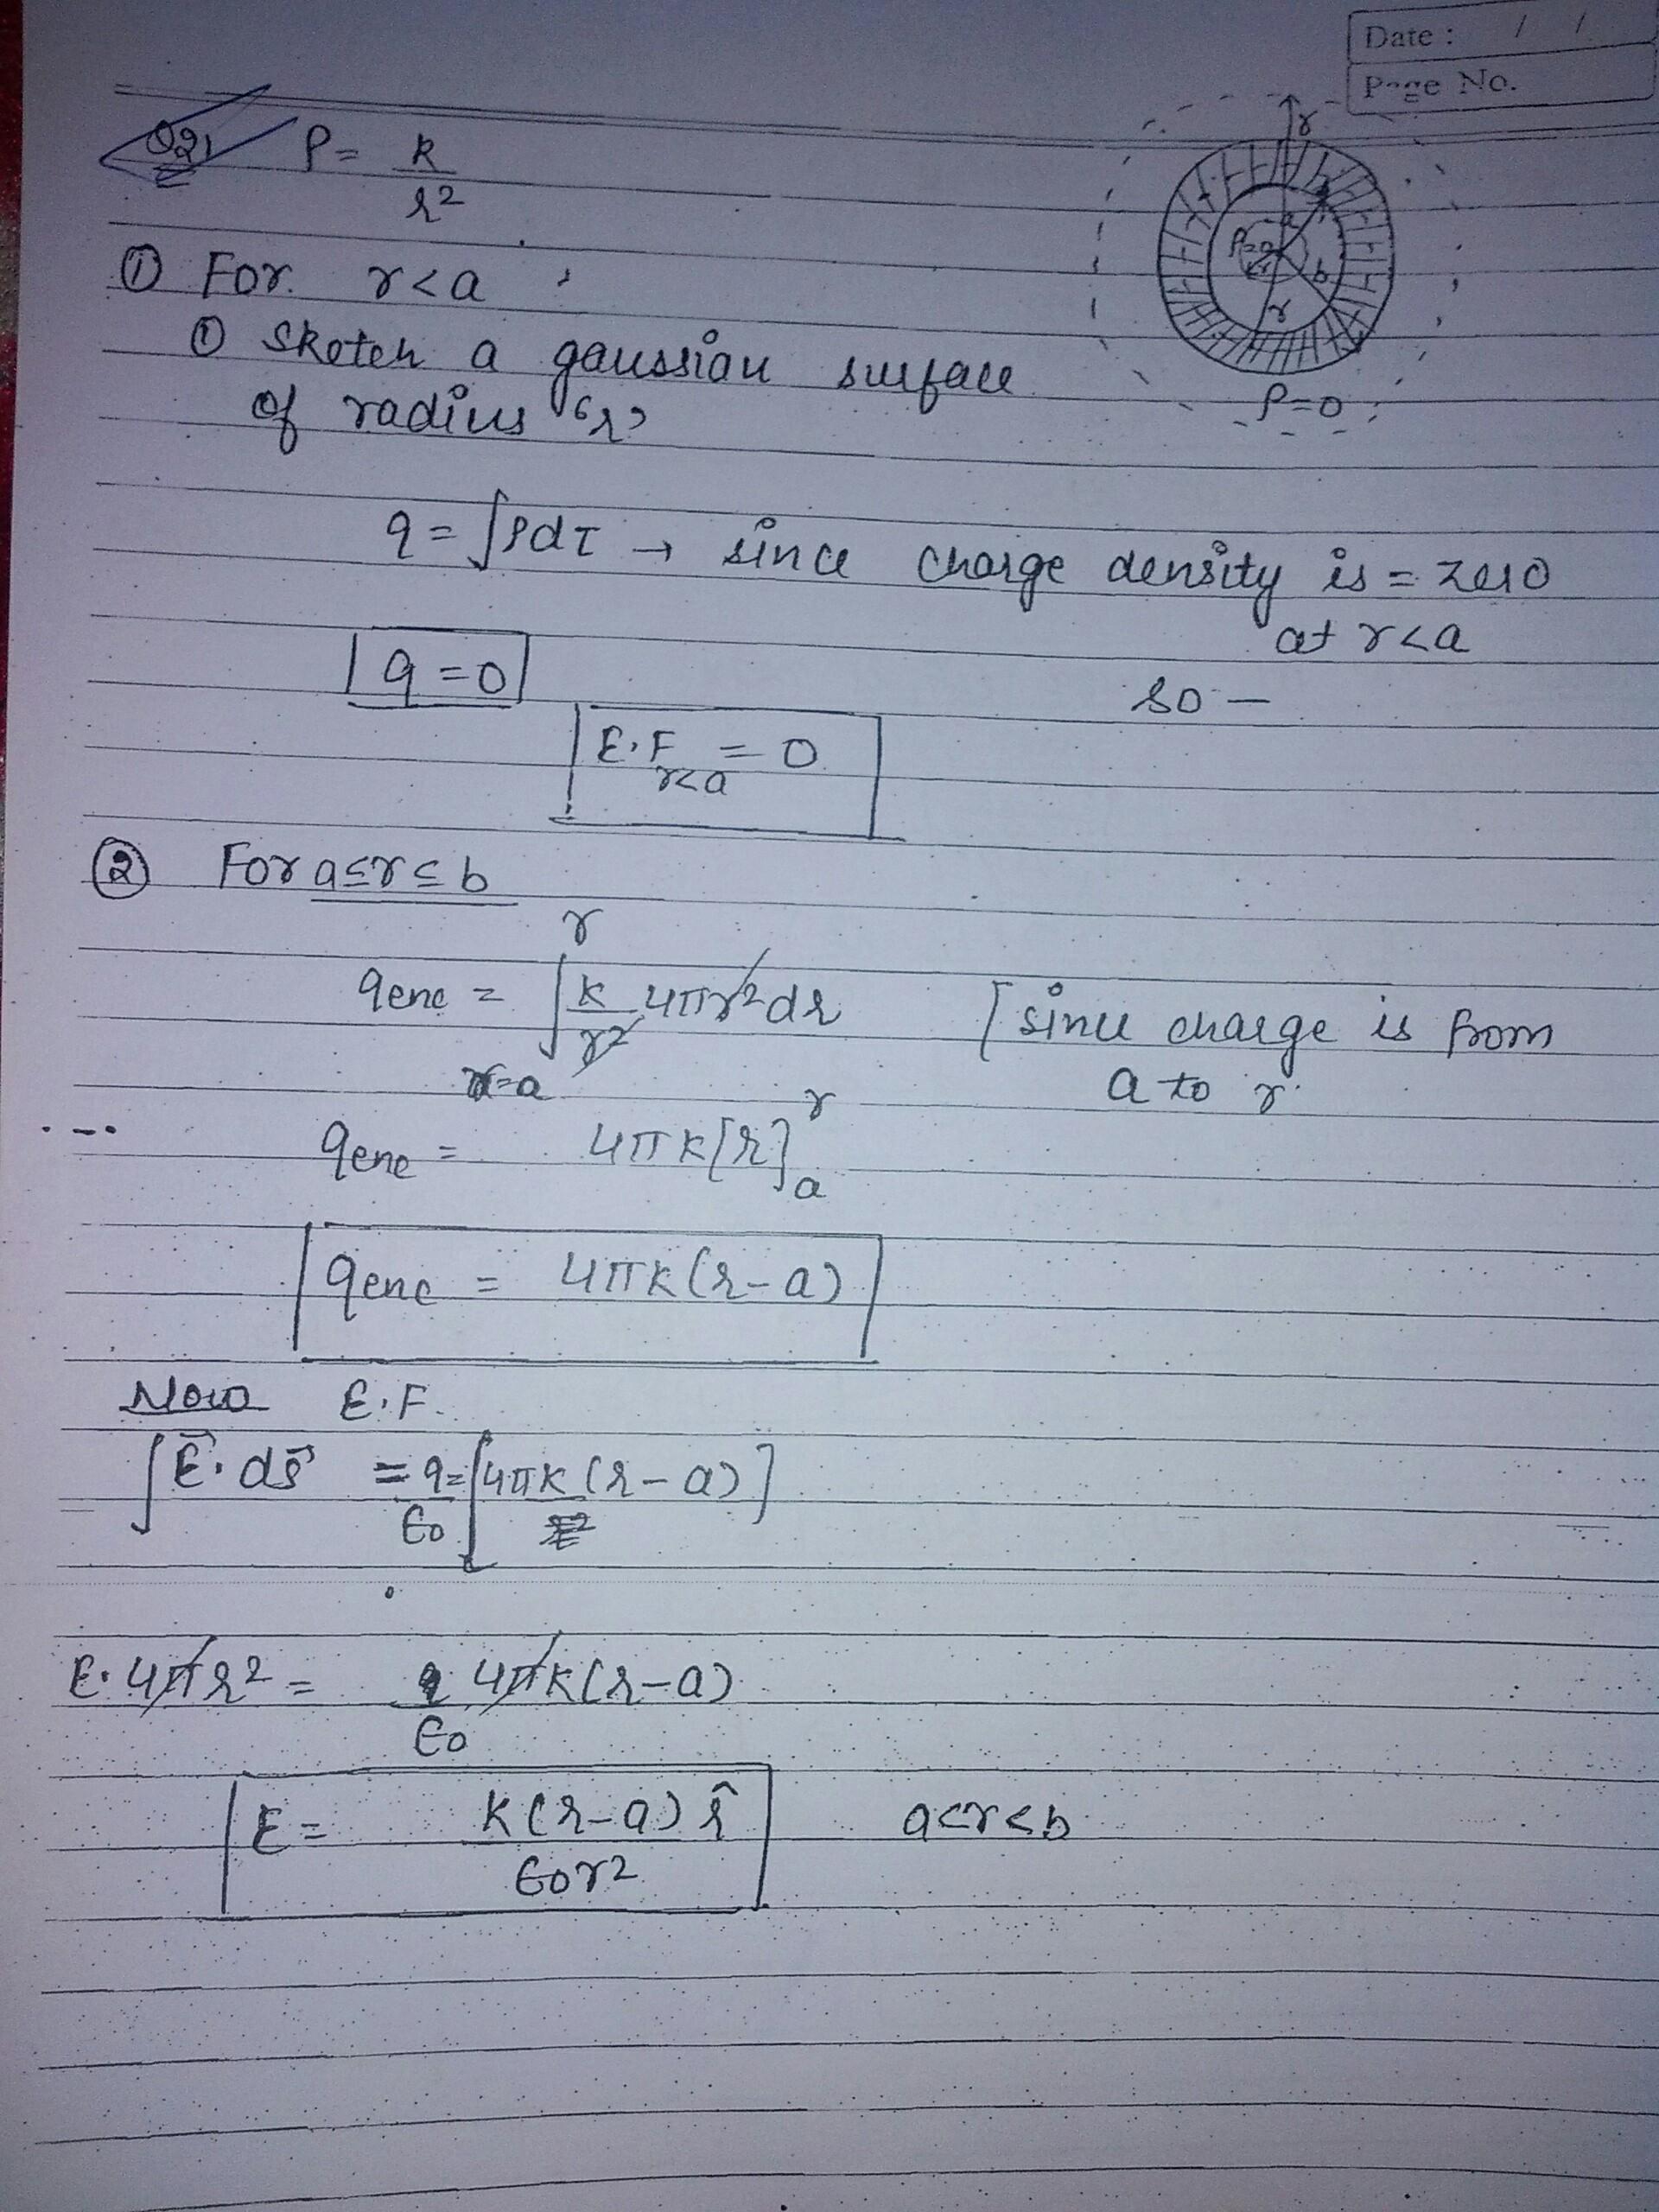 Date : / /
Page No.
Q2, ρ = k/r²
① For r<a
① Sketch a gaussian surface
of radius 'r'
q = ∫ρdτ → since charge density is = zero
at r<a
q = 0
so —
E.F r<a = 0
② For a≤r≤b
qenc = ∫ r=a r k/r² 4πr²dr [since charge is from
a to r.
qenc = 4πk[r] a r
qenc = 4πk(r-a)
Now E.F.
∫E⃗.ds⃗ = q/ϵ0 = [4πk(r-a)]
E.4πr² = 4πk(r-a)/ϵ0
E = k(r-a) r̂/ϵ0r² a<r<b
r
a
b
r
ρ=0